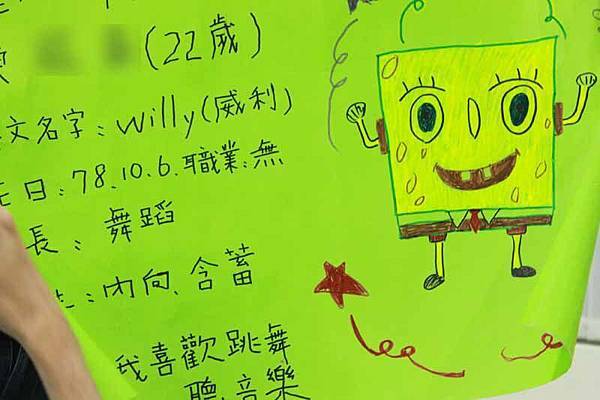 (22歲)
文名字:willy(威利)
日:78.10.6.職業:無
長:舞蹈
:內向、含蓄
我喜歡跳舞
聽音樂